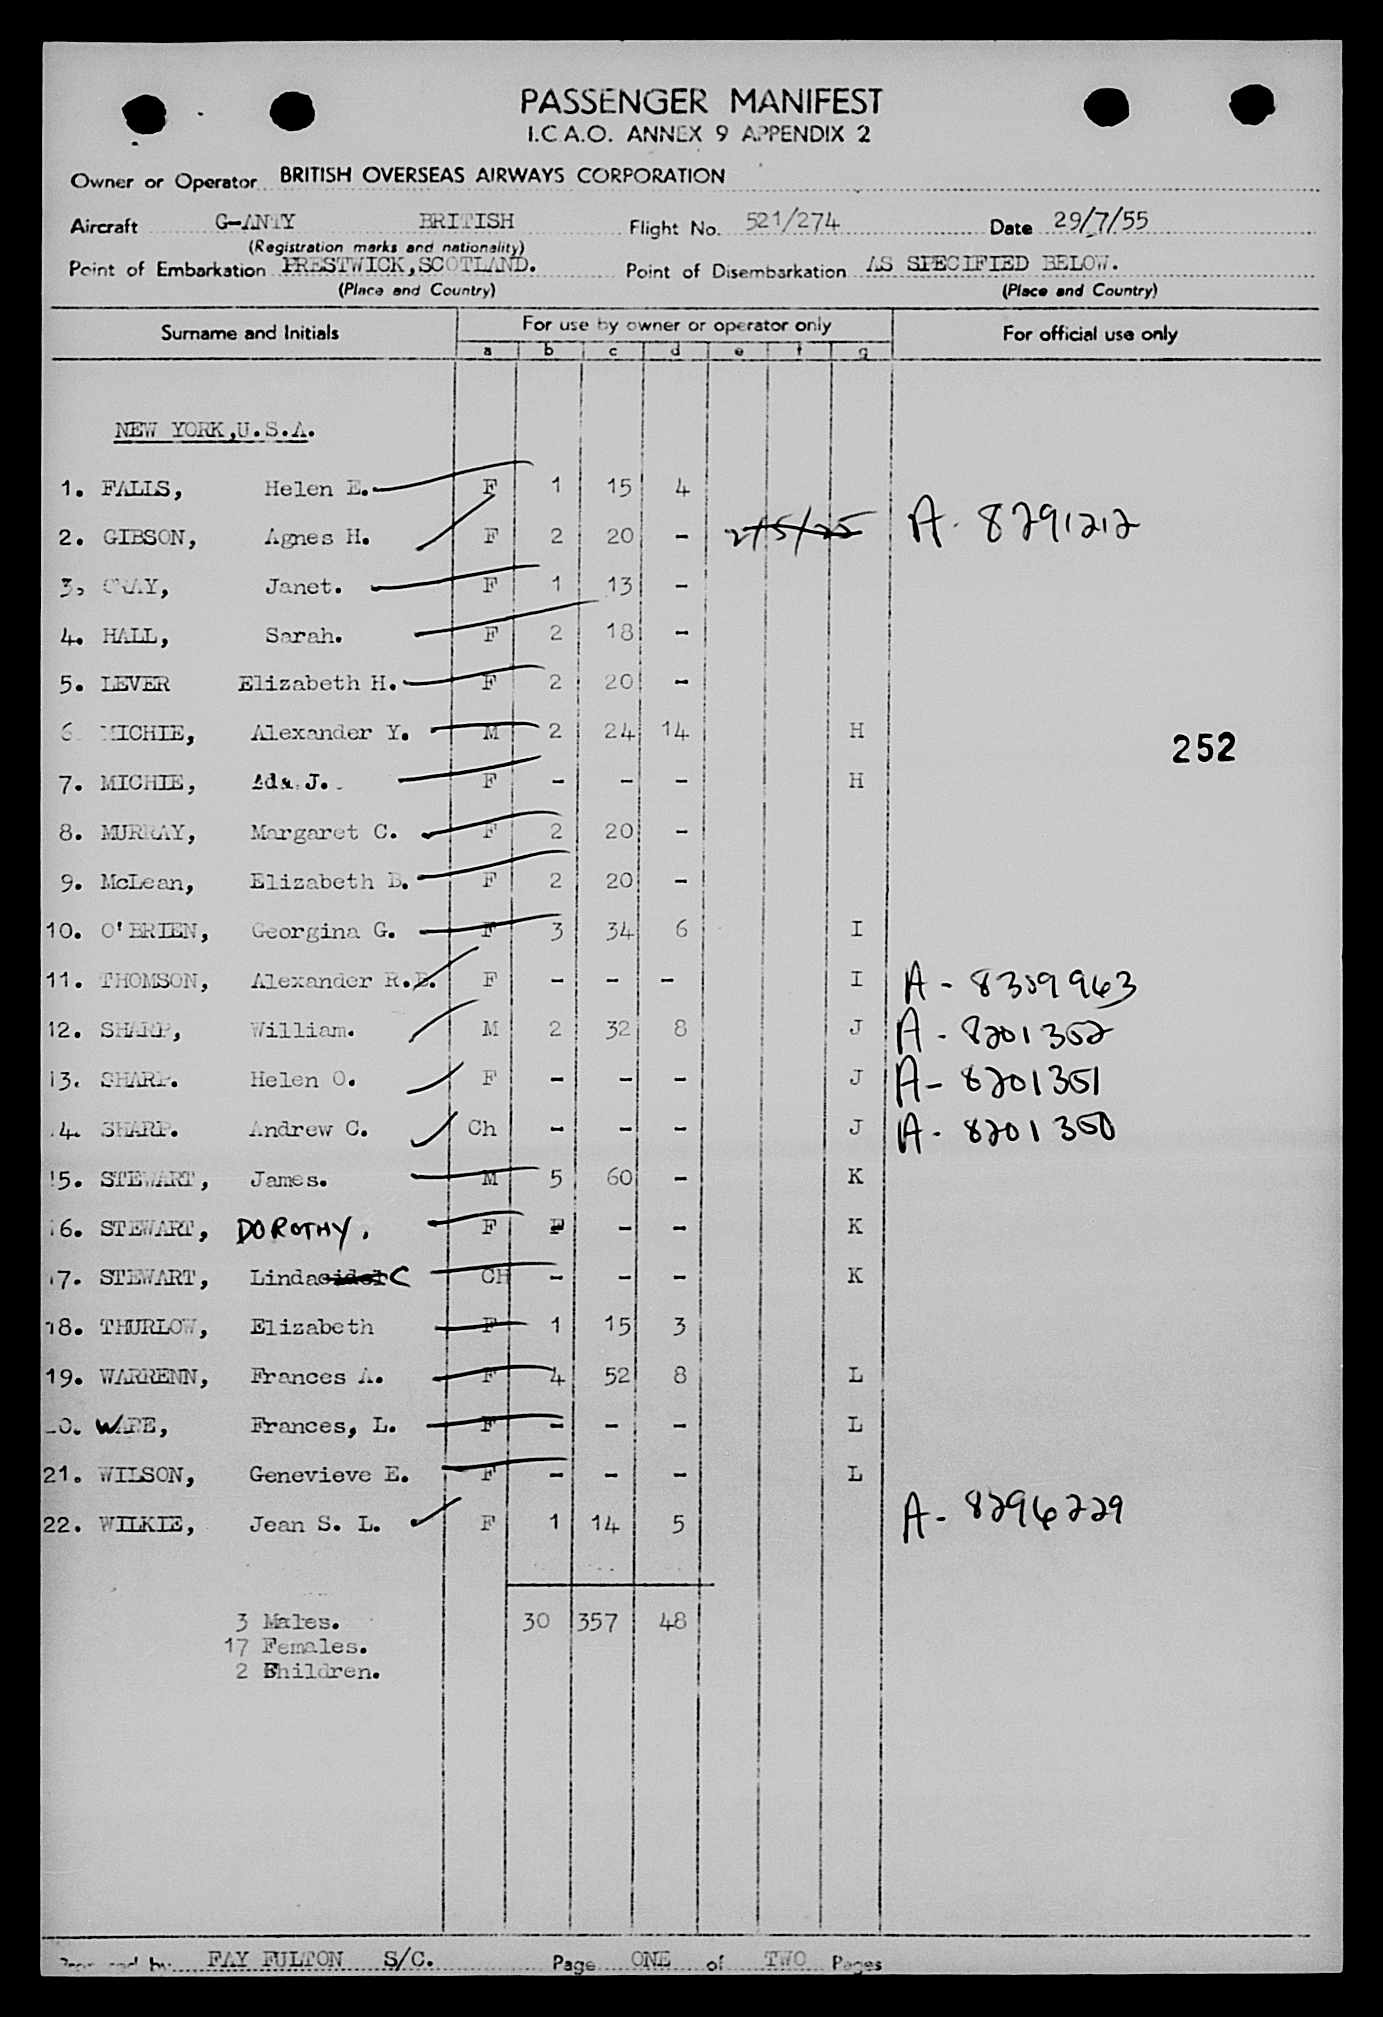 PASSENGER MANIFEST
I.C.A.O. ANNEX 9 APPENDIX 2
Owner or Operator BRITISH OVERSEAS AIRWAYS CORPORATION
Aircraft G-ANTY BRITISH Flight No. 521/274 Date 29/7/55
(Registration marks and nationality)
Point of Embarkation PRESTWICK, SCOTLAND. Point of Disembarkation AS SPECIFIED BELOW.
(Place and Country) (Place and Country)
Surname and Initials For use by owner or operator only For official use only
a b c d e f g
NEW YORK, U.S.A.
1. FALLS, Helen E. F 1 15 4
2. GIBSON, Agnes H. F 2 20 - A-8291212
3. GRAY, Janet. F 1 13 -
4. HALL, Sarah. F 2 18 -
5. LEVER Elizabeth H. F 2 20 -
6 MICHIE, Alexander Y. M 2 24 14 H
252
7. MICHIE, Ada. J. F - - - H
8. MURRAY, Margaret C. F 2 20 -
9. McLean, Elizabeth B. F 2 20 -
10. O'BRIEN, Georgina G. F 3 34 6 I
11. THOMSON, Alexander R.B. F - - - I A-8309963
12. SHARP, William. M 2 32 8 J A-8201352
13. SHARP. Helen O. F - - - J A-8201351
14. SHARP. Andrew C. Ch - - - J A-8201350
15. STEWART, James. M 5 60 - K
16. STEWART, DOROTHY, F - - - K
17. STEWART, Linda C CH - - - K
18. THURLOW, Elizabeth F 1 15 3
19. WARRENN, Frances A. F 4 52 8 L
20. WARE, Frances, L. F - - - L
21. WILSON, Genevieve E. F - - - L
22. WILKIE, Jean S. L. F 1 14 5 A-8296229
30 357 48
3 Males.
17 Females.
2 Children.
Prepared by FAY FULTON S/C. Page ONE of TWO Pages